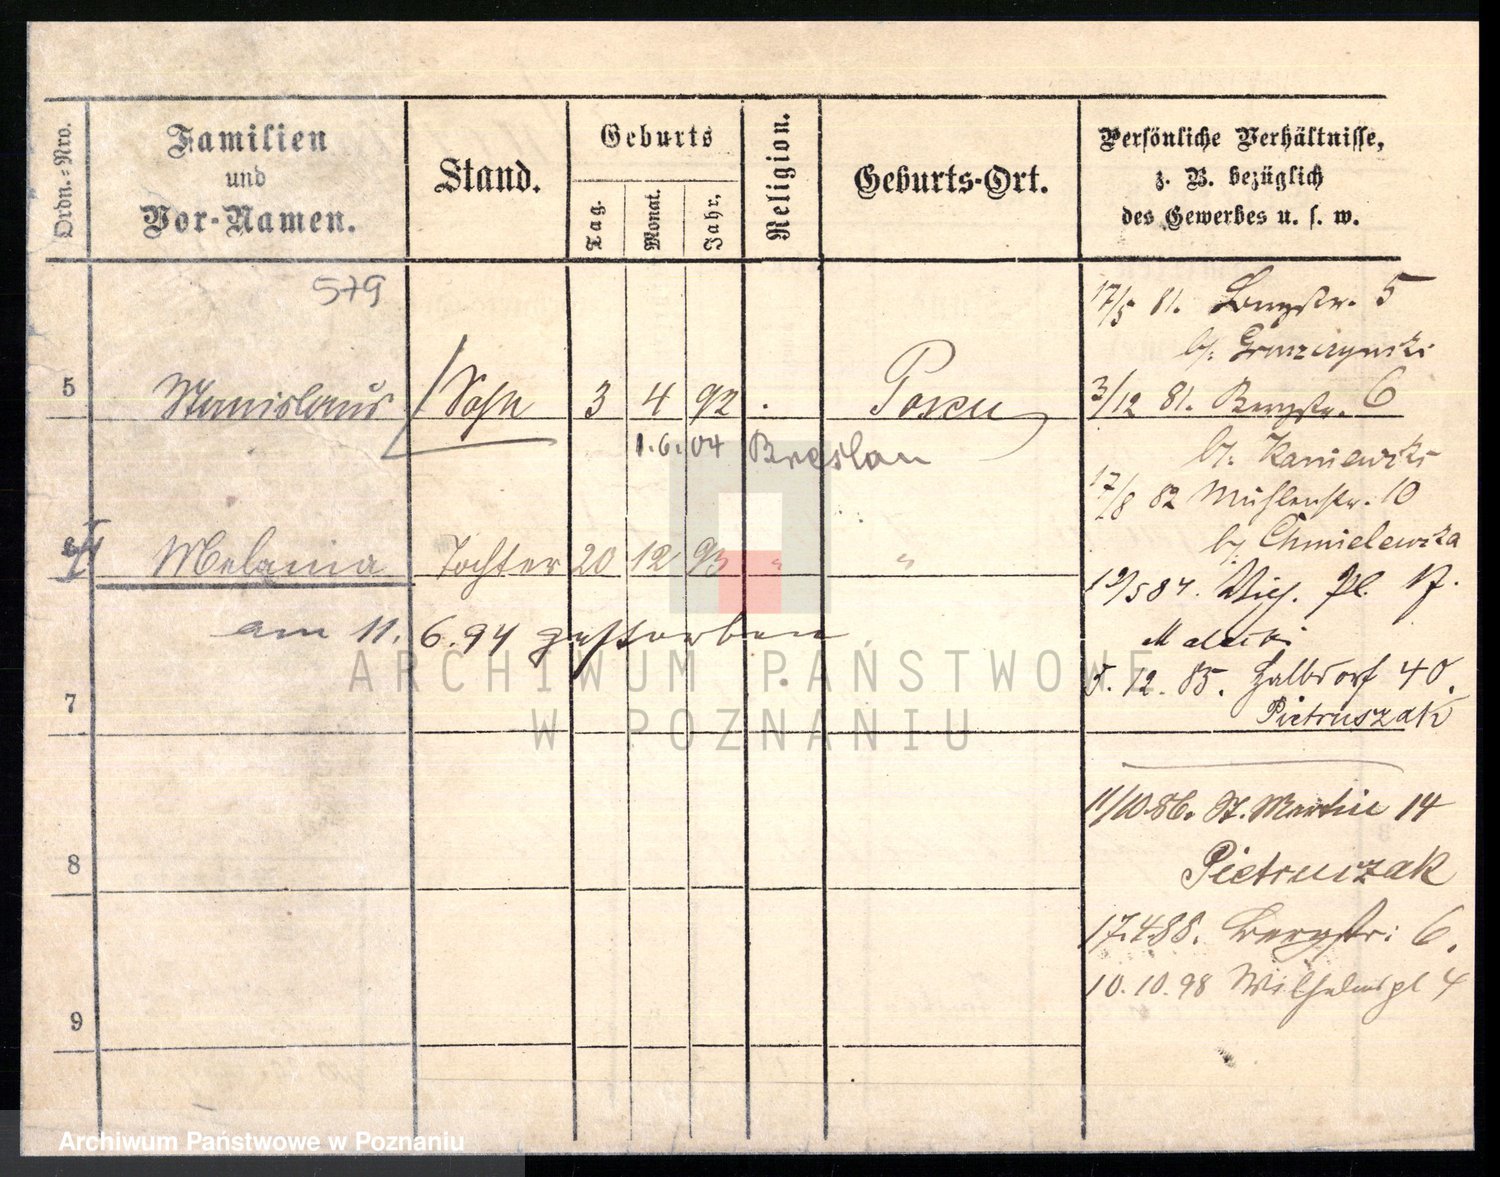 Ordn.=Nro.
Familien
und
Vor-Namen.
Stand.
Geburts
Tag.
Monat.
Jahr.
Religion.
Geburts-Ort.
Persönliche Verhältnisse,
z. B. bezüglich
des Gewerbes u. s. w.
579
5
Stanislaus
Sohn
3
4
92
Posen
1.6.04 Breslau
6
Melania
Tochter
20
12
93
"
"
am 11. 6. 94 gestorben
7
8
9
17/5 81. Bergstr. 5
b/. Gruszczynski
3/12 81. Bergstr. 6
b/. Kaniewski
17/8 82 Mühlenstr. 10
b/. Chmielewska
19/5 84. Pl.
Malecki
5. 12. 85. Halbdorf 40.
Pietruszak
11/10.86. St. Martin 14
Pietruszak
17.4.88. Bergstr: 6.
10.10.98 Wilhelmspl 4
ARCHIWUM PAŃSTWOWE
W POZNANIU
Archiwum Państwowe w Poznaniu